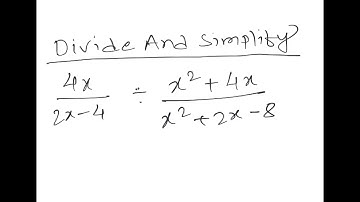 Divide And Simplify
4x/(2x-4) ÷ (x²+4x)/(x²+2x-8)